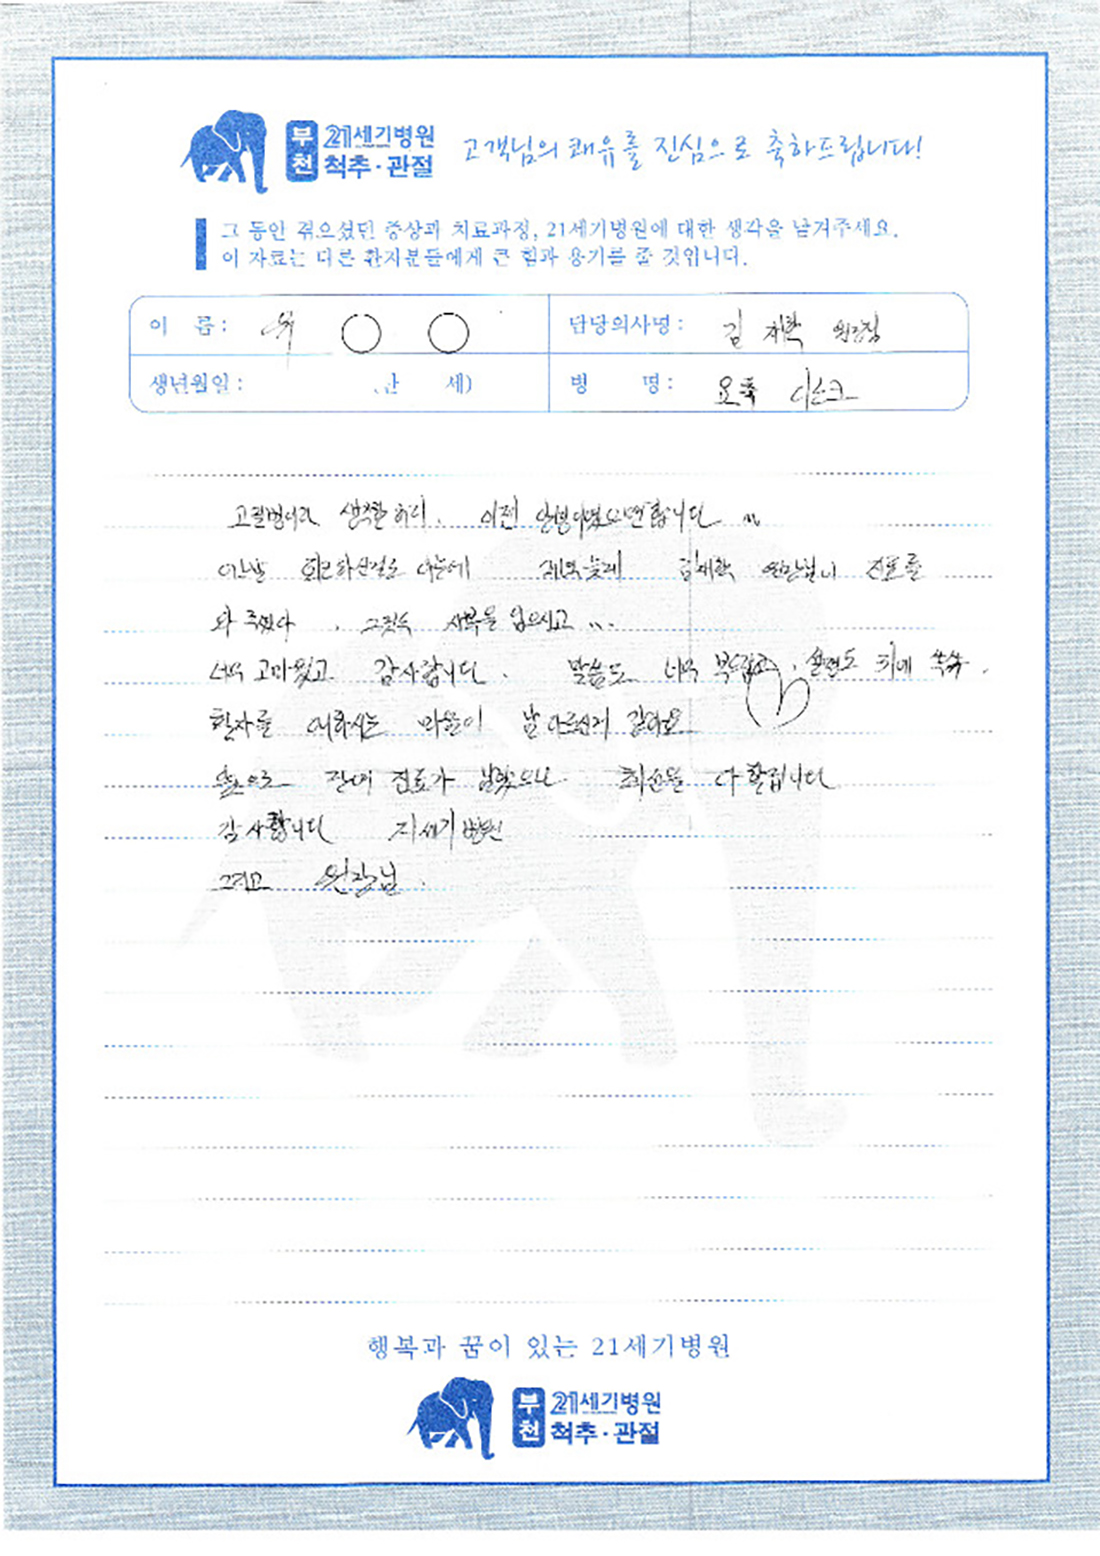 부천 21세기병원 척추·관절 고객님의 쾌유를 진심으로 축하드립니다!
그 동안 겪으셨던 증상과 치료과정, 21세기병원에 대한 생각을 남겨주세요.
이 자료는 다른 환자분들에게 큰 힘과 용기를 줄 것입니다.
이 름: 담당의사명: 김 재학 원장님
생년월일: (만 세) 병 명: 요추 디스크
생활하다. 이젠
김재학 원장님이 진료를
와 주셨다. 그것도 사복을 입으시고
너무 고마웠고 감사합니다. 말씀도 너무 부드럽고. 설명도 귀에 쏙쏙.
환자를 마음이 남 다르신거 같아요
앞으로 진료가 남았으나 최선을 다 할겁니다
감사합니다 21세기 병원
그리고 원장님.
행복과 꿈이 있는 21세기병원
부천 21세기병원 척추·관절